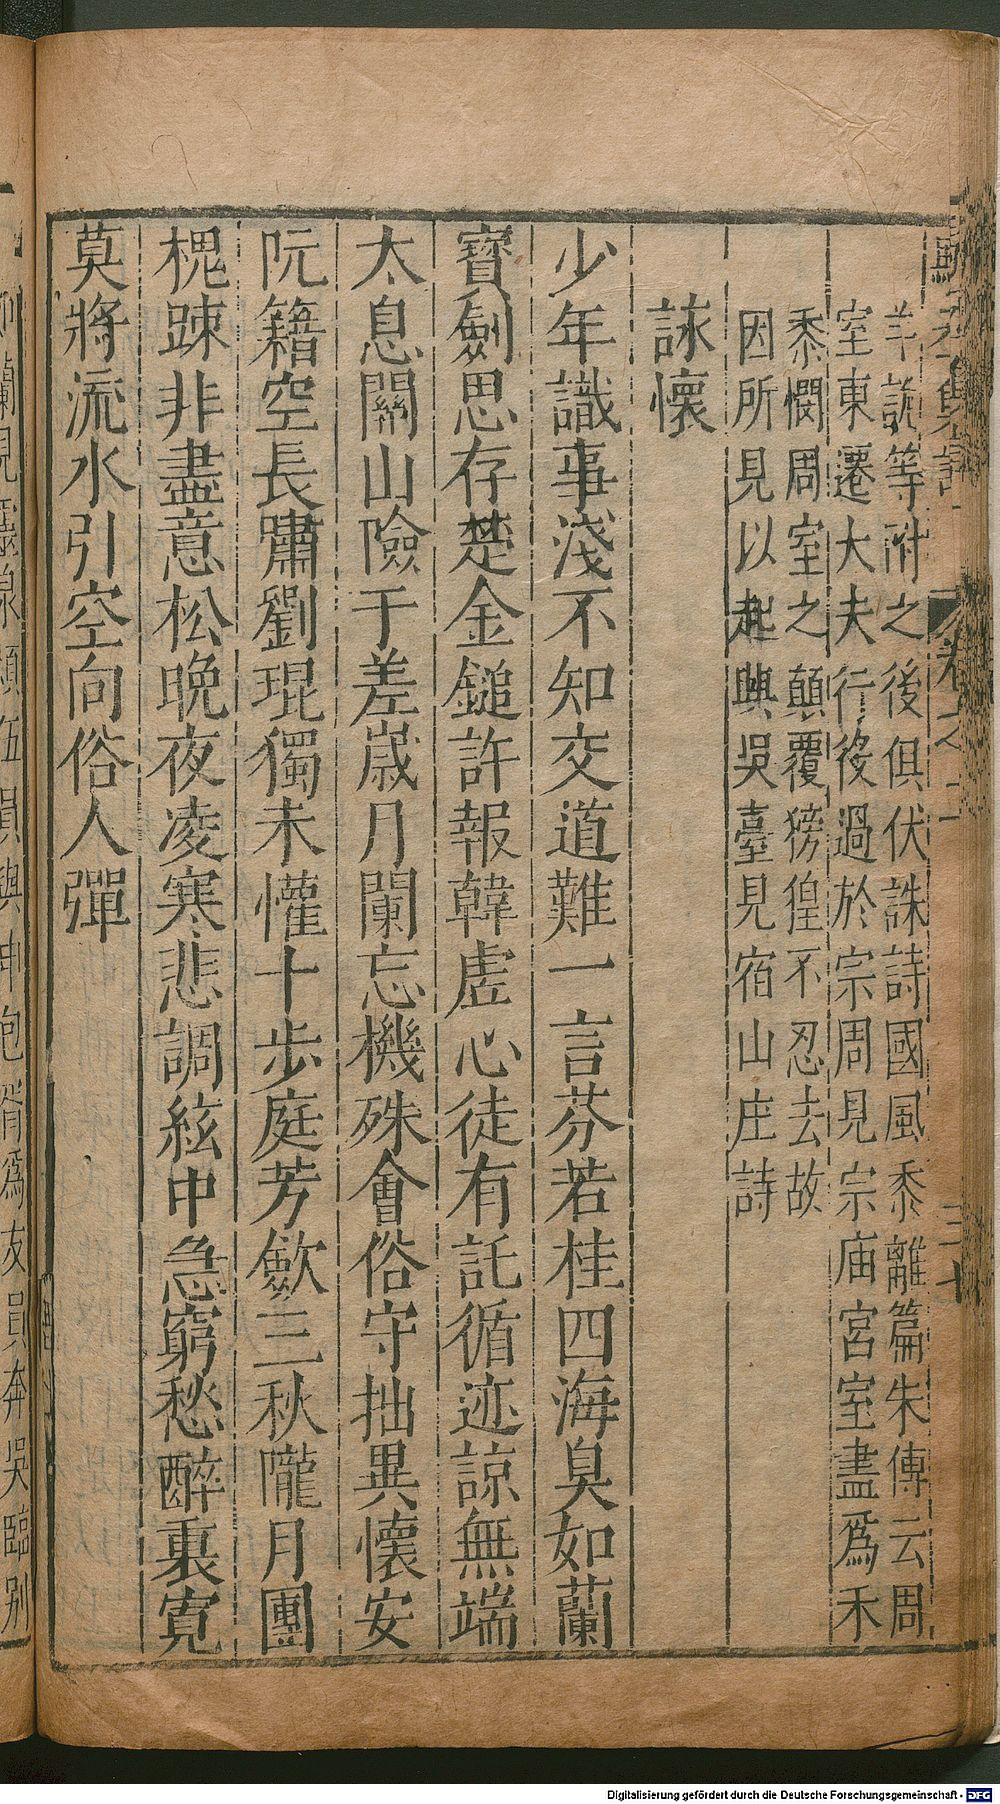 羊説等附之後俱伏誅詩國風黍離篇朱傳云周
室東遷大夫行役過於宗周見宗庙宮室盡爲禾
黍憫周室之顛覆徬徨不忍去故
因所見以起興吳臺見宿山庄詩
詠懷
少年識事淺不知交道難一言芬若桂四海臭如蘭
寶劍思存楚金鎚許報韓虗心徒有託循迹諒無端
太息關山險于差歲月闌忘機殊會俗守拙異懷安
阮籍空長嘯劉琨獨未懽十步庭芳歛三秋隴月團
槐踈非盡意松晚夜凌寒悲調絃中急窮愁醉裏寛
莫將流水引空向俗人彈
員與申包胥爲友員奔吳臨別
Digitalisierung gefördert durch die Deutsche Forschungsgemeinschaft - DFG